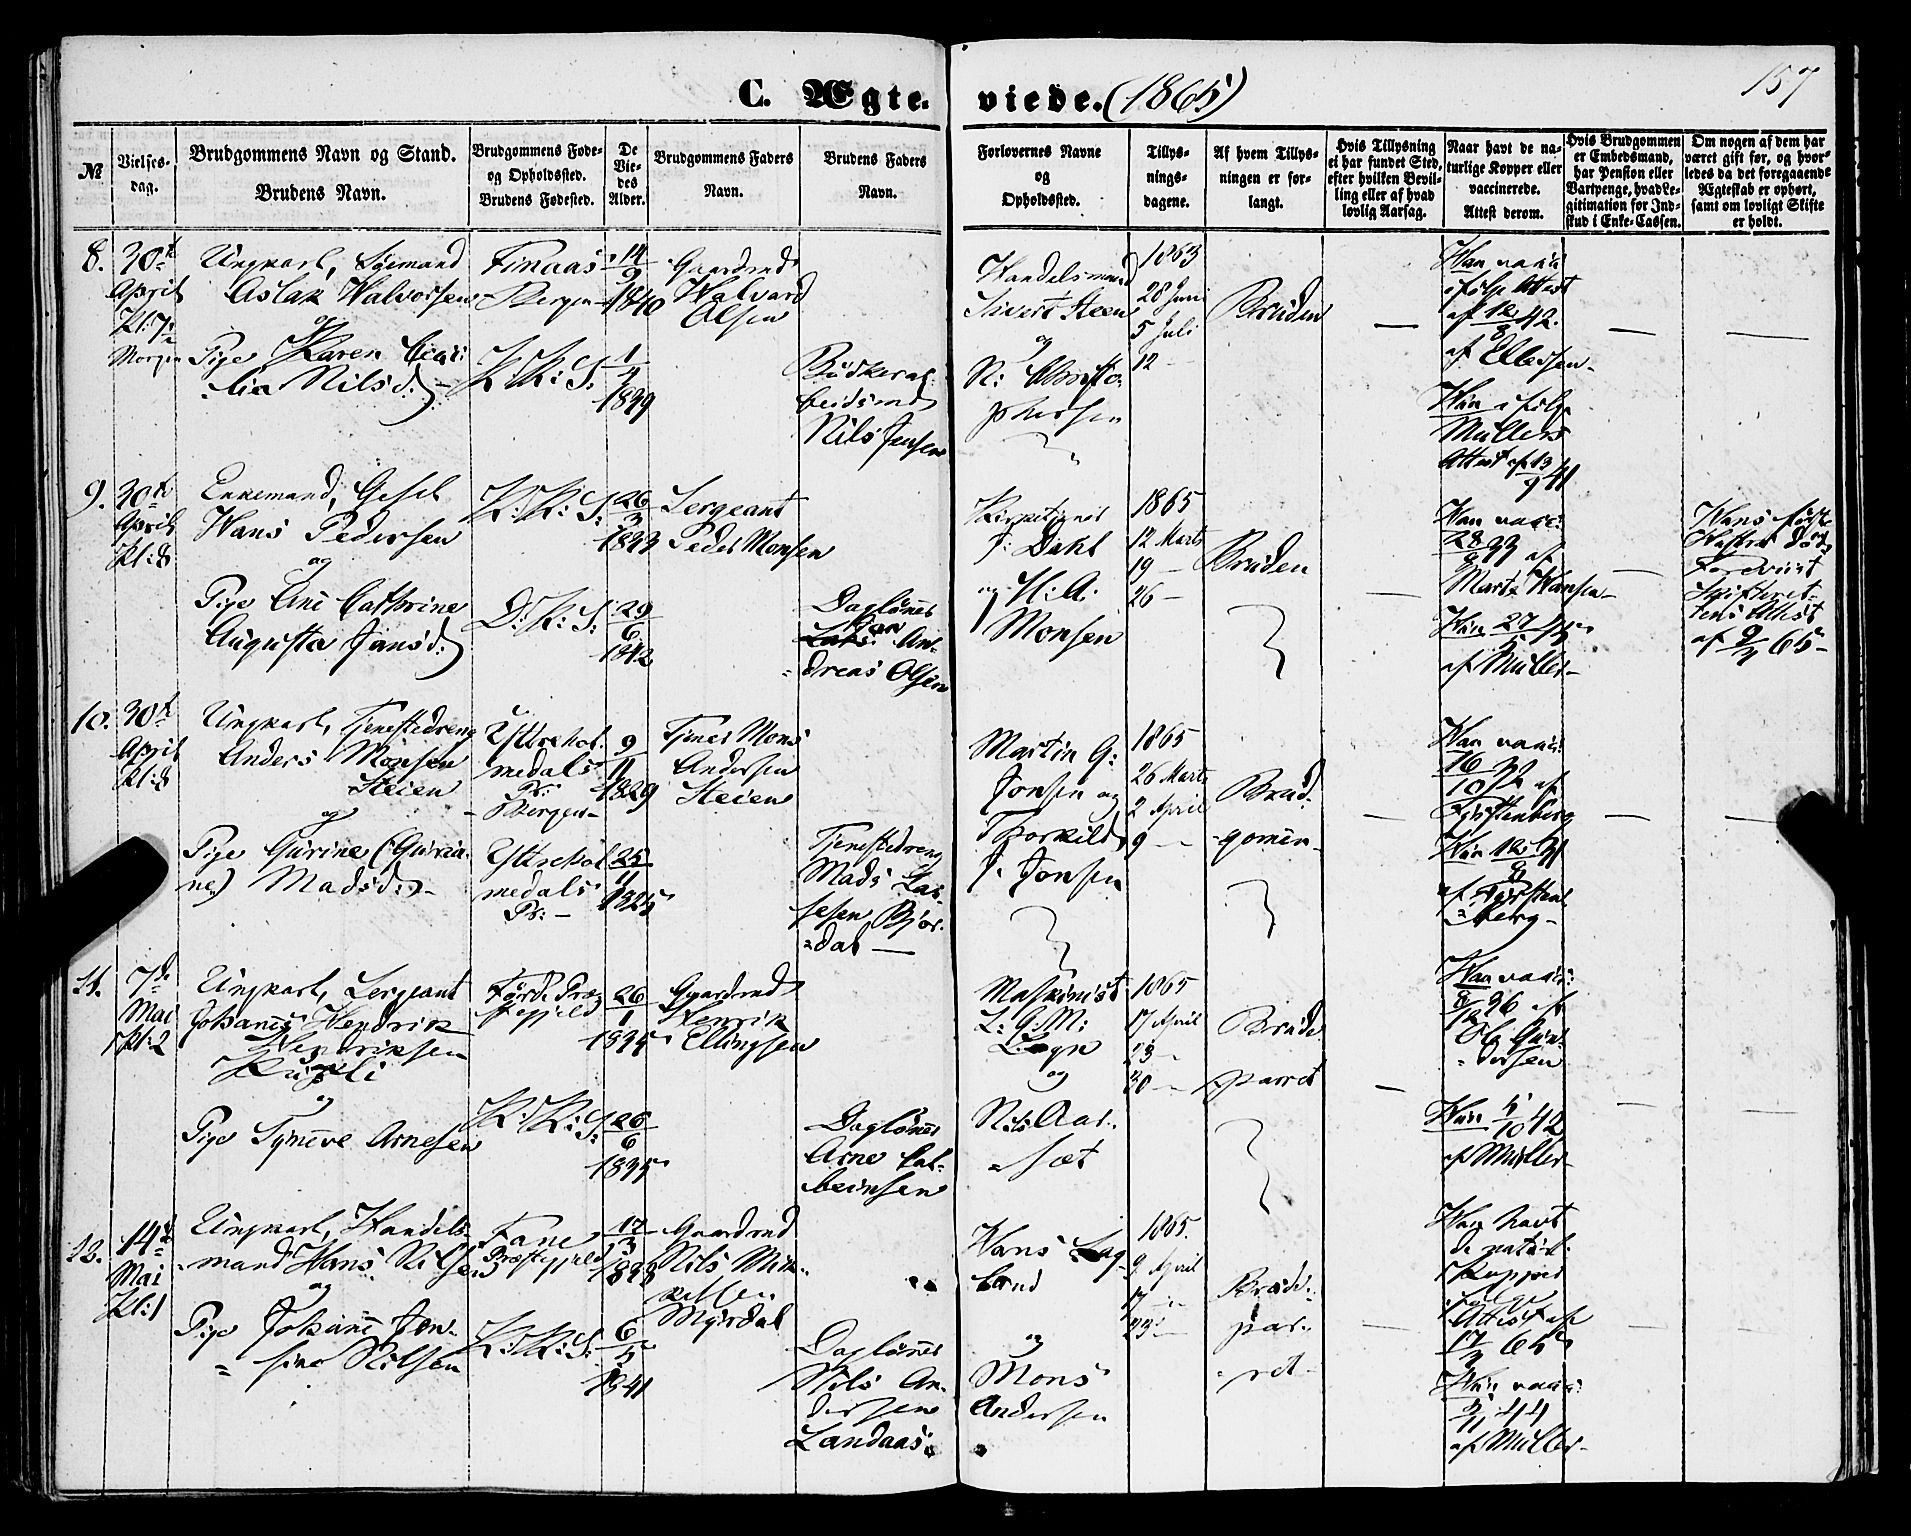 157
C. Ægte- viede. (1865)
№
Vielses-
dag.
Brudgommens Navn og Stand.
Brudens Navn.
Brudgommens Føde-
og Opholdssted.
Brudens Fødested.
De
Vie-
des
Alder.
Brudgommens Faders
Navn.
Brudens Faders
Navn.
Forlovernes Navne
og
Opholdssted.
Tillys-
nings-
dagene.
Af hvem Tillys-
ningen er for-
langt.
Hvis Tillysning
ei har fundet Sted,
efter hvilken Bevil-
ling eller af hvad
lovlig Aarsag.
Naar havt de na-
turlige Kopper eller
vaccinerede.
Attest derom.
Hvis Brudgommen
er Embedsmand,
har Pension eller
Vartpenge, hvad Le-
gitimation for Ind-
skud i Enke-Cassen.
Om nogen af dem har
været gift før, og hvor-
ledes da det foregaaende
Ægteskab er ophørt,
samt om lovligt Skifte
er holdt.
8.
30te
April
Kl: 7
Morgen
Ungkarl, Søemand
Aslak Halvorsen
og
Pige Karen Ceci-
lia Nilsd:
Finaas
Bergen
K: K: S:
14/9
1840
1/7
1839
Gaardmd
Halvard
Olsen
Bødkerar-
beidsmd
Nils Jensen
Handelsmand
Sivert Steen
og
N: Christo-
phersen
1863
28 Juni
5 Juli
12 —
Bruden
Han vacc:
ifølge Attest
af 12/8 42.
af Ellersen
Hun ifølge
Müllers
Attest af 13/9 41
9.
30te
April
Kl: 8
Enkemand, Gesel
Hans Pedersen
og
Pige Ane Cathrine
Augusta Jansd:
K: K: S:
D: K: S:
26/3
1833
29/6
1842
Sergeant
Peder Monsen
Daglønner
Jan An-
dreas Olsen
Kirketjener
J: Dahl
og H: A:
Monsen
1865
12 Marts
19 —
26 —
Bruden
Han vacc:
28/8 33 af
Marts Hansen
Hun 27/5 45
af Müller
Hans første
Hustru død,
Foreviist
Skifteret-
tens Attest
af 9/4 65
10.
30te
April
Kl: 8
Ungkarl, Tjenestedreng
Anders Monsen
Steien
og
Pige Gurine (Guria-
ne) Madsd:
Yttrehol-
medals
Pr:
Bergen
Yttrehol
medals
Pr:
9/11
1829
25/11
1825
Tjener Mons
Andersen
Steien
Tjenestedreng
Mads Las-
sesen Bjor-
dal
Martin G:
Jonsen og
Thorkild
J. Jonsen
1865
26 Marts
2 April
9 —
Brud-
gomen
Han vacc:
16/10 32 af
Fürstenberg
Hun 12/8 31
af Fürsten-
berg
11.
7de
Mai
Kl: 2
Ungkarl, Sergeant
Johannes Hendrik
Hendriksen
Kusli
og
Pige Syneve Arnesen
Førde Præ-
stegjeld
K: K: S:
26/1
1835
26/6
1835
Gaardmd
Henrik
Ellingsen
Daglønner
Arne Col-
beinsen
Maskinist
L: G: M:
Løgn
og
Nils Aar-
sæt
1865
17 April
23 —
30 —
Brude-
parret
Han vacc:
8/12 36 af
Ole Gun-
dersen
Hun 5/10 42
af Müller
12.
14de
Mai
Kl: 1
Ungkarl, Handels-
mand Hans Nilsen
og
Pige Johanne Jen-
sine Nilsen
Fane
Præstegjeld
K: K: S:
17/3
1838
6/5
1841
Gaardmd
Nils Mik-
kelsen
Myrdal
Daglønner
Nils An-
dersen
Landaas
Hans Lag-
land
og
Mons
Andersen
1865.
9 April
17 —
23 —
Brude-
par-
ret
Han havt
de naturl:
Kopper
ifølge
Attest af
17/3 65
Hun vacc:
2/11 44
af Müller